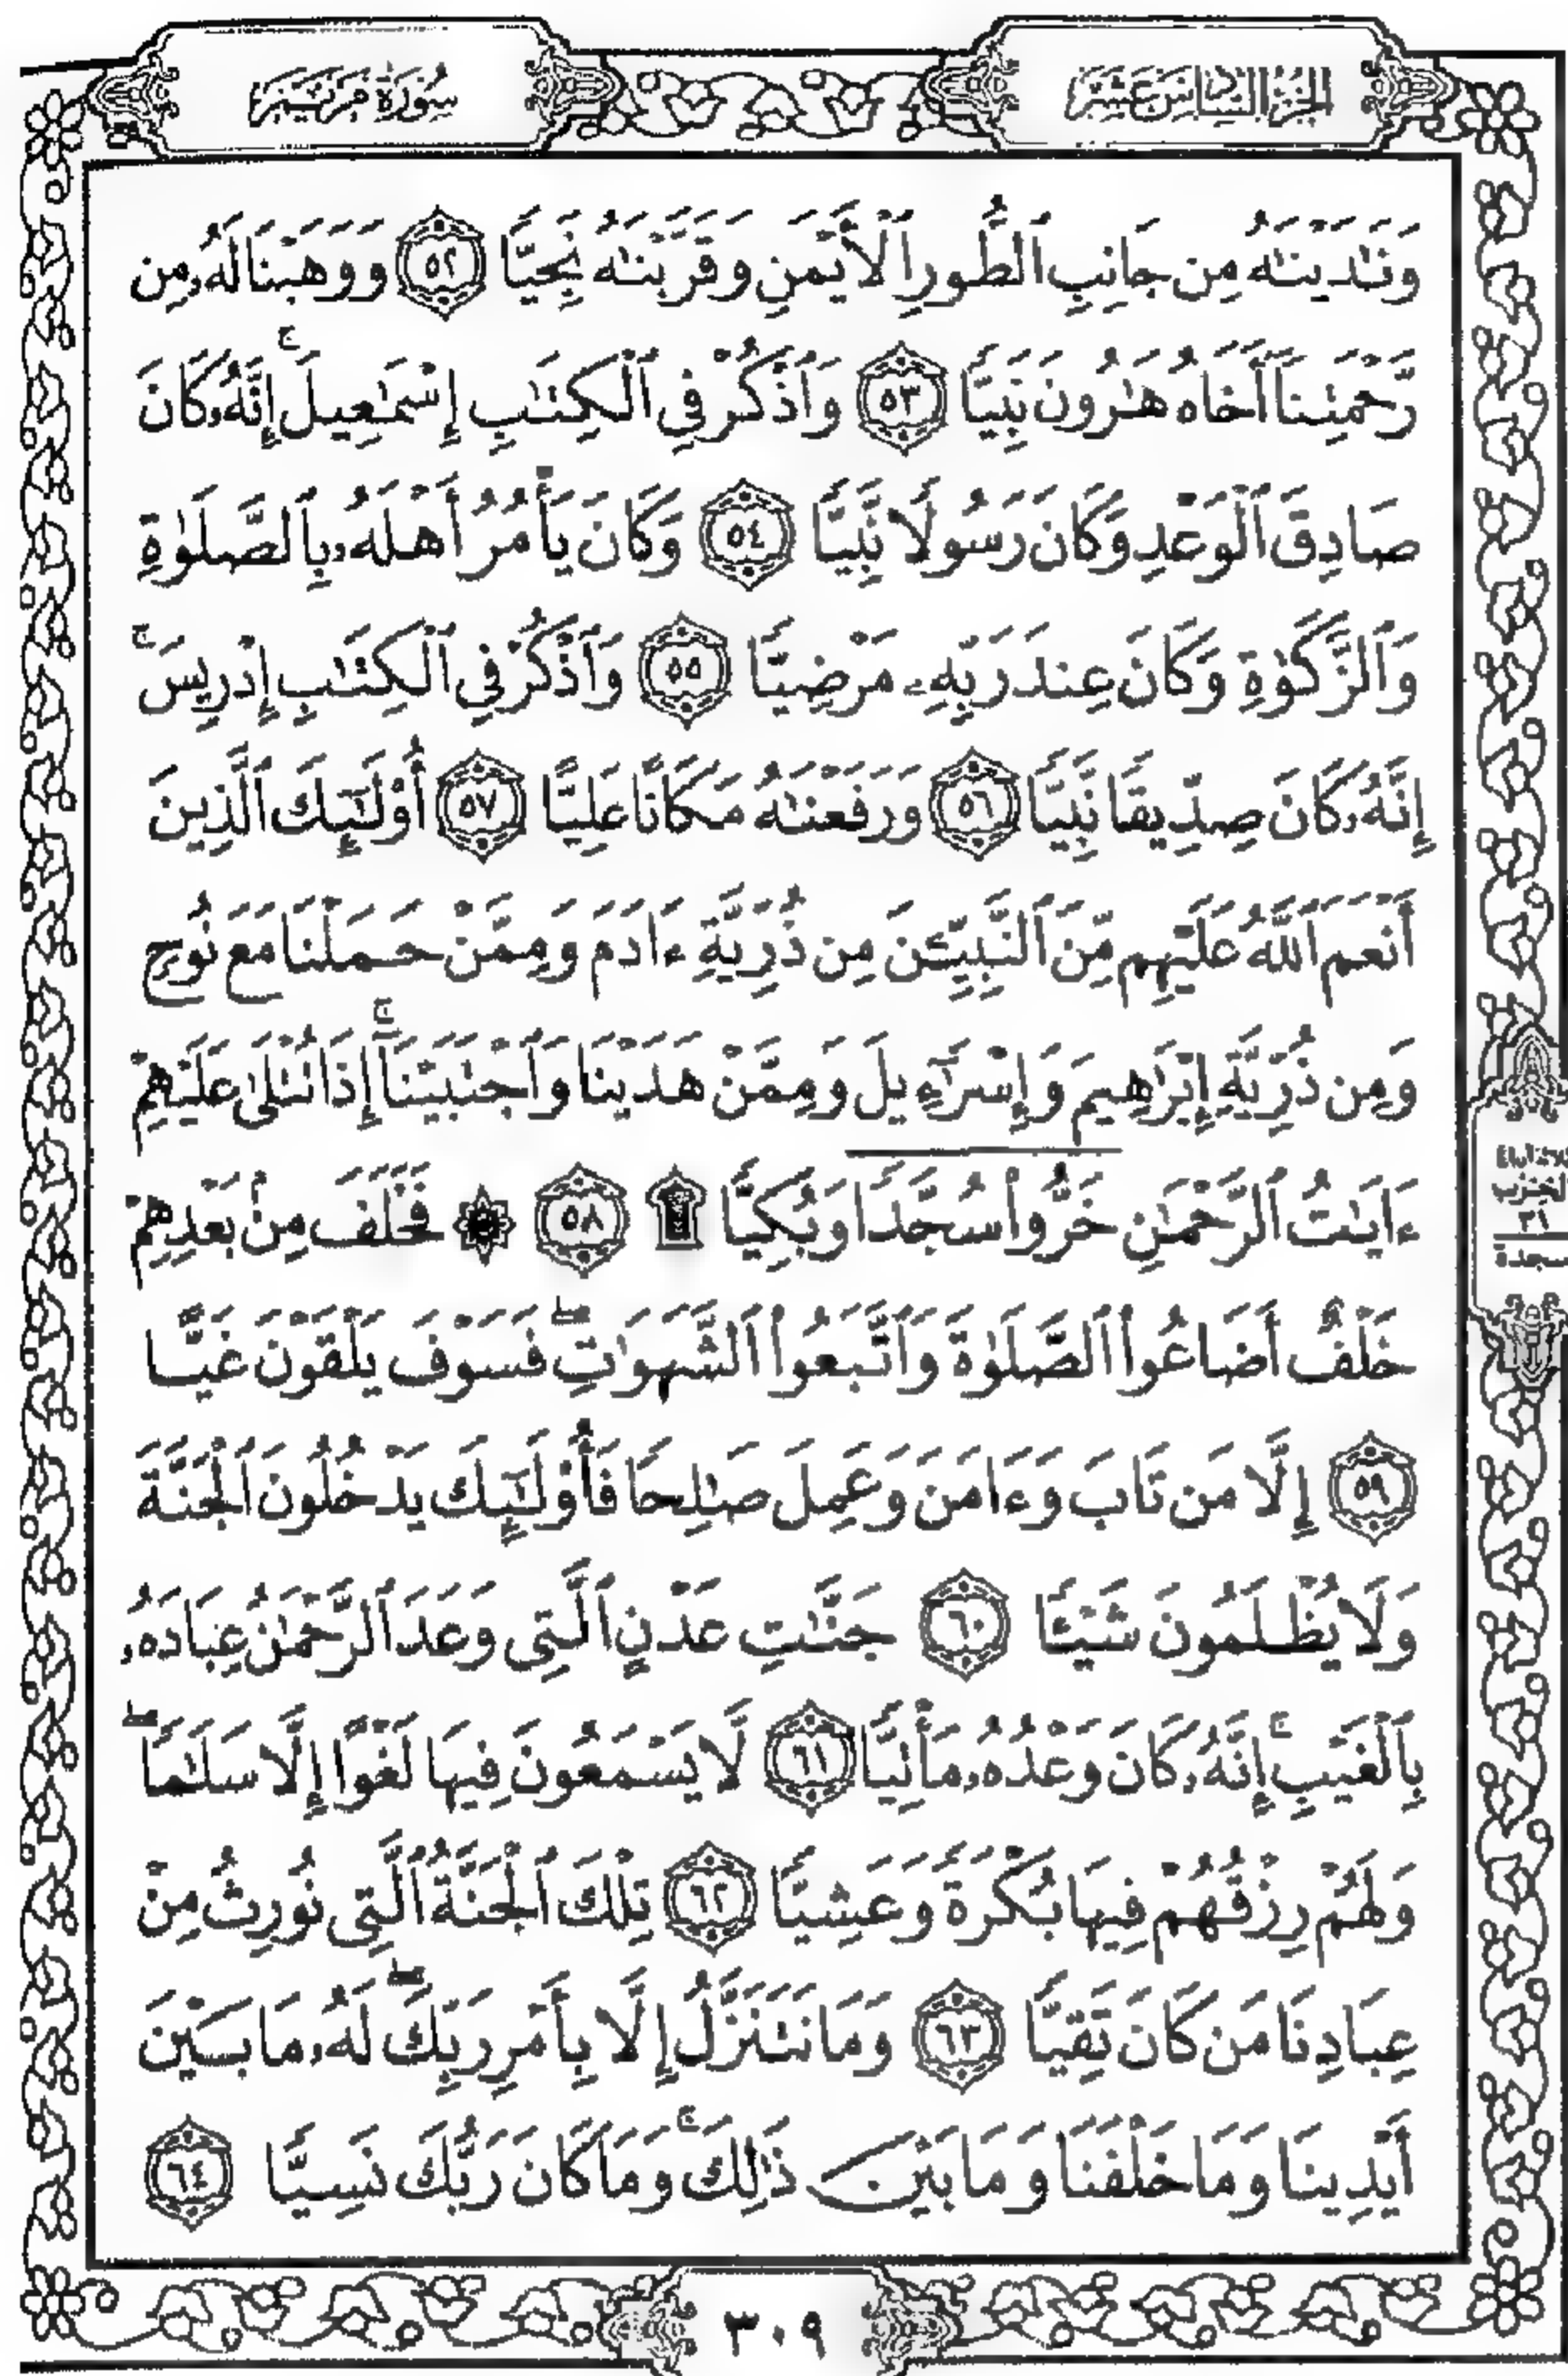 الجزء السادس عشر
سورة مريم
وَنَٰدَيْنَٰهُ مِن جَانِبِ ٱلطُّورِ ٱلْأَيْمَنِ وَقَرَّبْنَٰهُ نَجِيًّا ٥٢ وَوَهَبْنَا لَهُۥ مِن
رَّحْمَتِنَآ أَخَاهُ هَٰرُونَ نَبِيًّا ٥٣ وَٱذْكُرْ فِى ٱلْكِتَٰبِ إِسْمَٰعِيلَ ۚ إِنَّهُۥ كَانَ
صَادِقَ ٱلْوَعْدِ وَكَانَ رَسُولًا نَّبِيًّا ٥٤ وَكَانَ يَأْمُرُ أَهْلَهُۥ بِٱلصَّلَوٰةِ
وَٱلزَّكَوٰةِ وَكَانَ عِندَ رَبِّهِۦ مَرْضِيًّا ٥٥ وَٱذْكُرْ فِى ٱلْكِتَٰبِ إِدْرِيسَ ۚ
إِنَّهُۥ كَانَ صِدِّيقًا نَّبِيًّا ٥٦ وَرَفَعْنَٰهُ مَكَانًا عَلِيًّا ٥٧ أُو۟لَٰٓئِكَ ٱلَّذِينَ
أَنْعَمَ ٱللَّهُ عَلَيْهِم مِّنَ ٱلنَّبِيِّۦنَ مِن ذُرِّيَّةِ ءَادَمَ وَمِمَّنْ حَمَلْنَا مَعَ نُوحٍ
وَمِن ذُرِّيَّةِ إِبْرَٰهِيمَ وَإِسْرَٰٓءِيلَ وَمِمَّنْ هَدَيْنَا وَٱجْتَبَيْنَآ ۚ إِذَا تُتْلَىٰ عَلَيْهِمْ
ءَايَٰتُ ٱلرَّحْمَٰنِ خَرُّوا۟ سُجَّدًا وَبُكِيًّا ۩ ٥٨ ۞ فَخَلَفَ مِنۢ بَعْدِهِمْ
خَلْفٌ أَضَاعُوا۟ ٱلصَّلَوٰةَ وَٱتَّبَعُوا۟ ٱلشَّهَوَٰتِ ۖ فَسَوْفَ يَلْقَوْنَ غَيًّا
٥٩ إِلَّا مَن تَابَ وَءَامَنَ وَعَمِلَ صَٰلِحًا فَأُو۟لَٰٓئِكَ يَدْخُلُونَ ٱلْجَنَّةَ
وَلَا يُظْلَمُونَ شَيْـًٔا ٦٠ جَنَّٰتِ عَدْنٍ ٱلَّتِى وَعَدَ ٱلرَّحْمَٰنُ عِبَادَهُۥ
بِٱلْغَيْبِ ۚ إِنَّهُۥ كَانَ وَعْدُهُۥ مَأْتِيًّا ٦١ لَّا يَسْمَعُونَ فِيهَا لَغْوًا إِلَّا سَلَٰمًا ۖ
وَلَهُمْ رِزْقُهُمْ فِيهَا بُكْرَةً وَعَشِيًّا ٦٢ تِلْكَ ٱلْجَنَّةُ ٱلَّتِى نُورِثُ مِنْ
عِبَادِنَا مَن كَانَ تَقِيًّا ٦٣ وَمَا نَتَنَزَّلُ إِلَّا بِأَمْرِ رَبِّكَ ۖ لَهُۥ مَا بَيْنَ
أَيْدِينَا وَمَا خَلْفَنَا وَمَا بَيْنَ ذَٰلِكَ ۚ وَمَا كَانَ رَبُّكَ نَسِيًّا ٦٤
الحزب
٣١
سجدة
٣٠٩